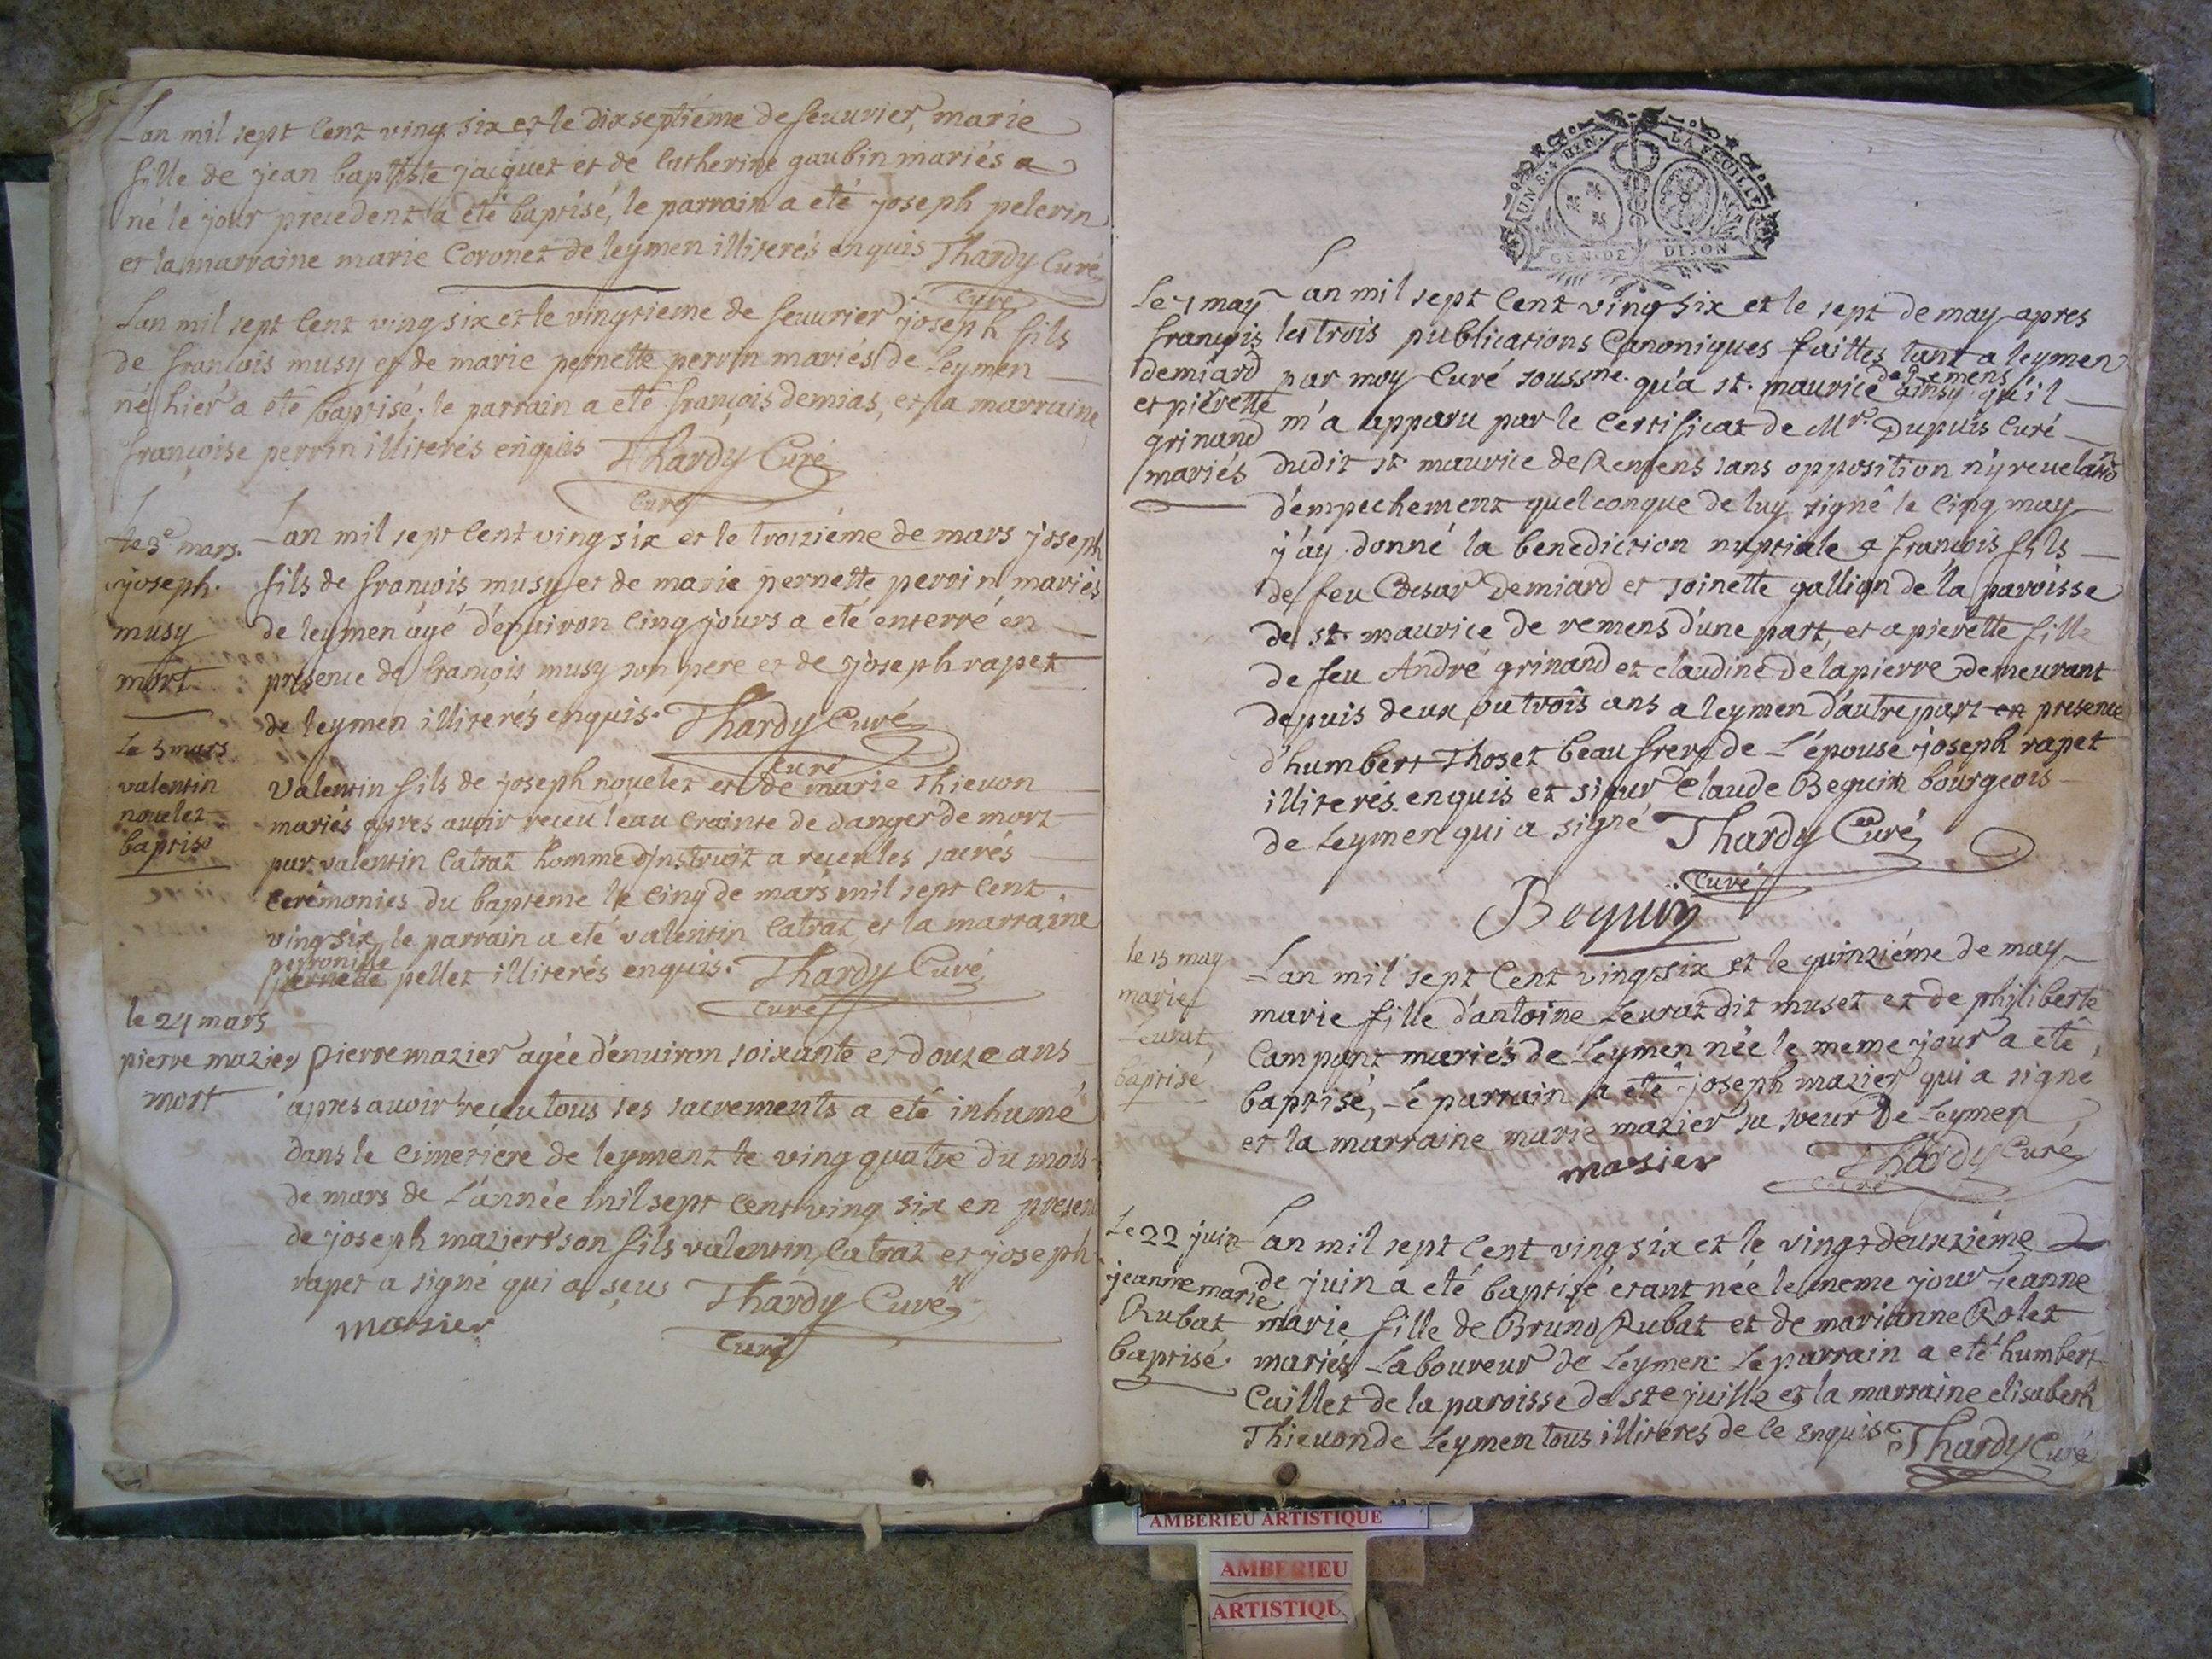 Lan mil sept Cent ving six et le dix septiéme de feuvrier, marie
fille de jean baptiste jacquet et de Catherine gaubin mariés a
né le jour precedent a eté baptisé, le parrain a eté joseph pelerin
et la marraine marie Coronet de leymen illiterés enquis Thardy Curé
curé
Lan mil sept Cent ving six et le vingtieme de feuurier joseph fils
de françois musy et de marie pernette perrin mariés de Leymen
né hier a eté baptisé; le parrain a eté françois demias, et la marraine
françoise perrin illiterés enquis Thardy Curé
Curé
Le 3e mars.
joseph.
musy
mort
Lan mil sept Cent ving six et le troiziéme de mars joseph
fils de françois musy et de marie pernette perrin mariés
de leymen agé d'enuiron Cinq jours a eté enterré en
presence de françois musy son pere et de joseph rapet
de leymen illiterés enquis. Thardy Curé
Curé
Le 5 mars
valentin
nouelet
baptisé
Valentin fils de joseph nouelet et de marie Thieuon
mariés apres auoir receu l'eau Crainte de danger de mort
par valentin Catrat homme instruit a receu les sacrés
Cerémonies du baptême le Cinq de mars mil sept Cent
ving six, le parrain a eté valentin Catrat et la marraine
perronille
pernete pellet illiterés enquis. Thardy Curé
Curé
le 24 mars
pierre mazier
mort
pierre mazier agée d'enuiron soixante et douze ans
apres auoir receu tous ses sacrements a eté inhumé
dans le Cimetiere de leyment le ving quatre du mois
de mars de L'année mil sept Cent ving six en presen
de joseph maziers son fils valentin Catrat et joseph
rapet a signé qui a sçus Thardy Curé
masier
Curé
UN S. 4 DEN. LA FEUILLE
GEN. DE DIJON
Le 7 may
françois
demiard
et pierette
grinand
mariés
Lan mil sept Cent ving six et le sept de may apres
les trois publications Canoniques faittes tant a leymen
par moy Curé soussne. qu'a st. maurice de Remens ainsy qu'il
m'a apparu par le Certificat de Mr. Dupuis Curé
dudit st maurice de Remens sans opposition n'y reuelaõn
d'empechement quelconque de luy signé le Cinq may
j'ay donné la benediction nuptiale a françois fils
de feu Cesar Demiard et Toinette gallion de la paroisse
de st. maurice de remens d'une part, et a pierette fille
de feu André grinand et claudine delapierre demeurant
depuis deux ou trois ans a leymen d'autre part en presence
d'humbert Thoset beau frere de L'épouse joseph rapet
illiterés enquis et sieur Claude Bequin bourgeois
de Leymen qui a signé Thardy Curé
Curé
Bequin
le 15 may
marie
Leurat
baptisé
Lan mil sept Cent ving six et le quinziéme de may
marie fille d'antoine Leurat dit muset et de philiberte
Campant mariés de Leymen née le meme jour a eté
baptisé, Le parrain a eté joseph mazier qui a signé
et la marraine marie mazier sa soeur de Leymen
masier Thardy Curé
Curé
Le 22 juin
jeanne marie
Rubat
baptisé.
Lan mil sept Cent ving six et le vingt deuxziéme
de juin a eté baptisé etant née le meme jour jeanne
marie fille de Bruno Rubat et de marianne Rolet
mariés Laboureur de Leymen. Le parrain a eté humbert
Caillet de la paroisse de ste juille et la marraine elisabeth
Thieuon de Leymen tous illiteres de ce enquis Thardy Curé
AMBERIEU ARTISTIQUE
AMBERIEU
ARTISTIQU